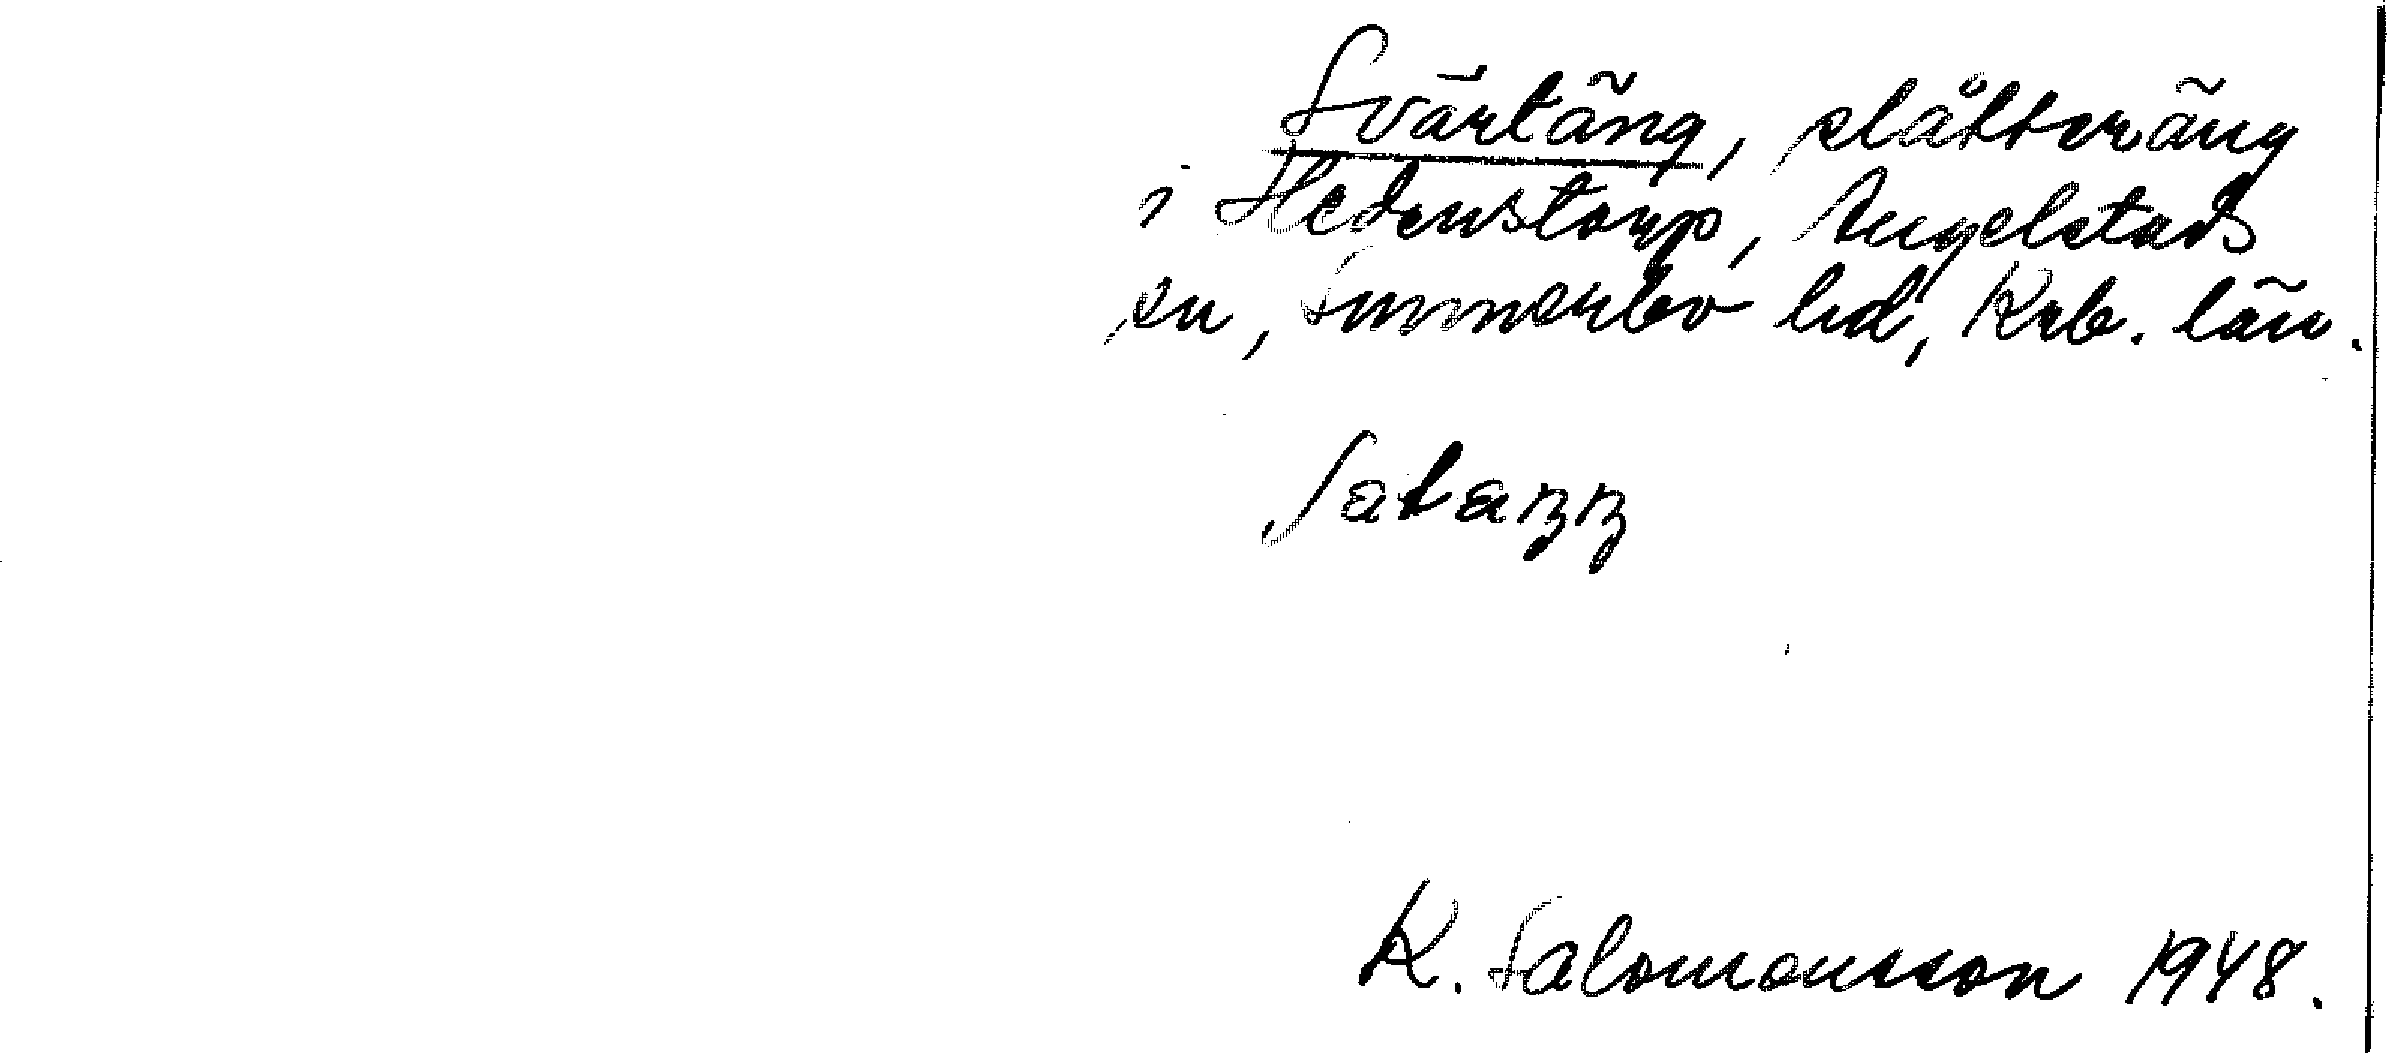 Svärtäng, slåtteräng
i Hedenstorp, Angelstads
sn, Sunnerbo hd, Krb. län.
K. Salomonsson 1948.